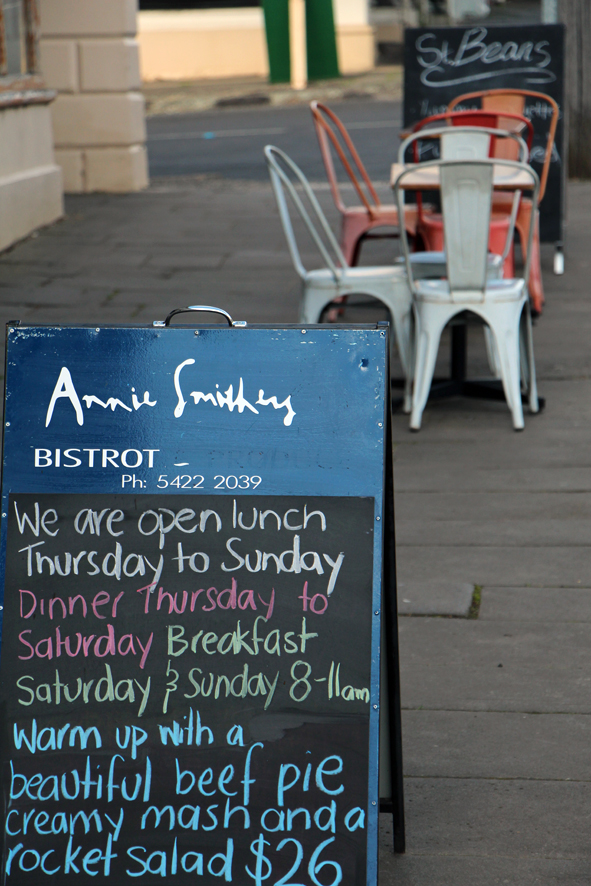 St. Beans
Annie Smithers
BISTROT -
Ph: 5422 2039
We are open lunch
Thursday to Sunday
Dinner Thursday to
Saturday Breakfast
Saturday & Sunday 8-11am
Warm up with a
beautiful beef pie
creamy mash and a
rocket salad $26